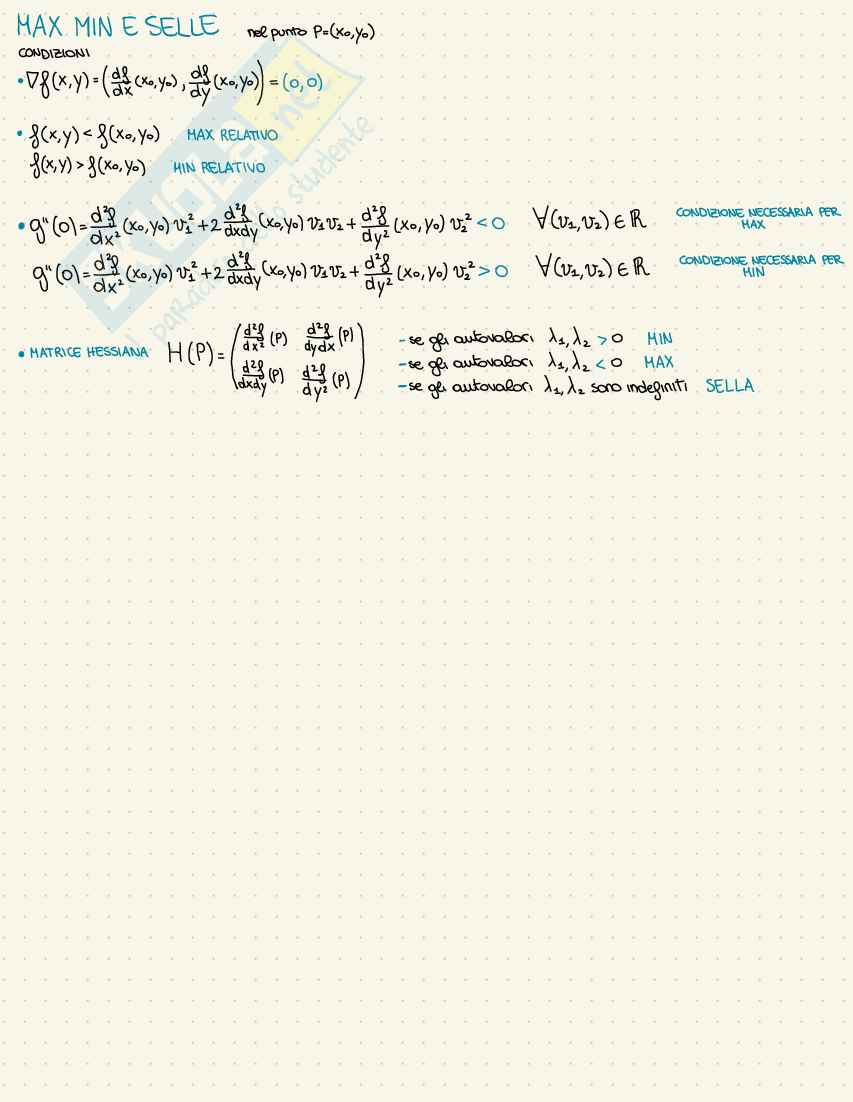 MAX MIN E SELLE nel punto P=(x₀,y₀)
CONDIZIONI
• ∇f(x,y) = (df/dx (x₀,y₀), df/dy (x₀,y₀)) = (0,0)
• f(x,y) < f(x₀,y₀) MAX RELATIVO
f(x,y) > f(x₀,y₀) MIN RELATIVO
• g''(0) = d²f/dx² (x₀,y₀) v₁² + 2 d²f/dxdy (x₀,y₀) v₁v₂ + d²f/dy² (x₀,y₀) v₂² < 0 ∀(v₁,v₂) ∈ ℝ CONDIZIONE NECESSARIA PER
MAX
g''(0) = d²f/dx² (x₀,y₀) v₁² + 2 d²f/dxdy (x₀,y₀) v₁v₂ + d²f/dy² (x₀,y₀) v₂² > 0 ∀(v₁,v₂) ∈ ℝ CONDIZIONE NECESSARIA PER
MIN
• MATRICE HESSIANA H(P) = (d²f/dx² (P) d²f/dydx (P)
d²f/dxdy (P) d²f/dy² (P))
- se gli autovalori λ₁,λ₂ > 0 MIN
- se gli autovalori λ₁,λ₂ < 0 MAX
- se gli autovalori λ₁,λ₂ sono indefiniti SELLA